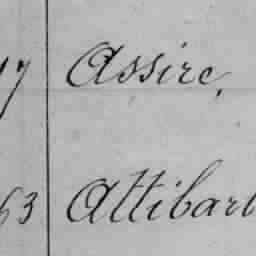 17 Assire,
63 Attibart